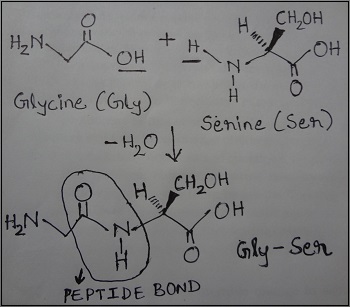 H₂N O OH + H N H H CH₂OH OH O
Glycine (Gly) Serine (Ser)
-H₂O
H₂N O N H H CH₂OH OH O
Gly-Ser
PEPTIDE BOND